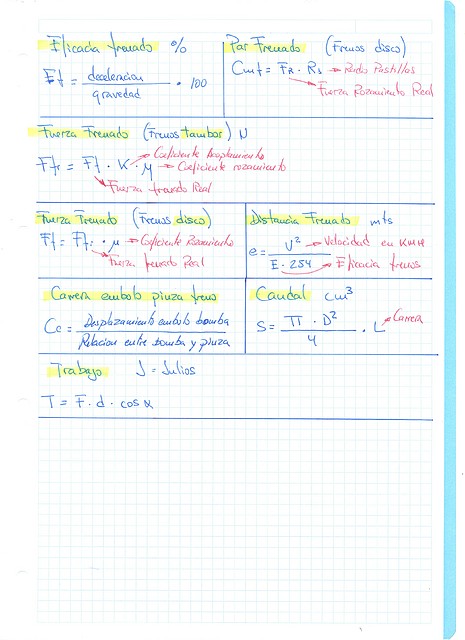 Eficacia frenado %
Ef = deceleracion / gravedad · 100
Par Frenado (Frenos disco)
Cmf = FR · Rs → Radio Pastillas
Fuerza Rozamiento Real
Fuerza Frenado (Frenos tambor) N
Ffr = Ff · K · μ
Coeficiente Acoplamiento
Coeficiente rozamiento
Fuerza frenado Real
Fuerza Frenado (Frenos disco)
Ff = Ffr · μ → Coeficiente Rozamiento
Fuerza frenado Real
Distancia Frenado mts
e = V² / E · 254
Velocidad en KMH
Eficacia frenos
Carrera embolo pinza freno
Cc = Desplazamiento embolo bomba / Relacion entre bomba y pinza
Caudal cm³
S = π · D² / 4 · L
Carrera
Trabajo J = Julios
T = F · d · cos α